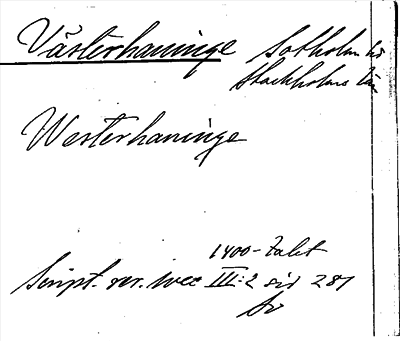 Västerhaninge Sotholms hd
Stockholms län
Westerhaninge
1400-talet
Script. rer. svec III:2 sid 281